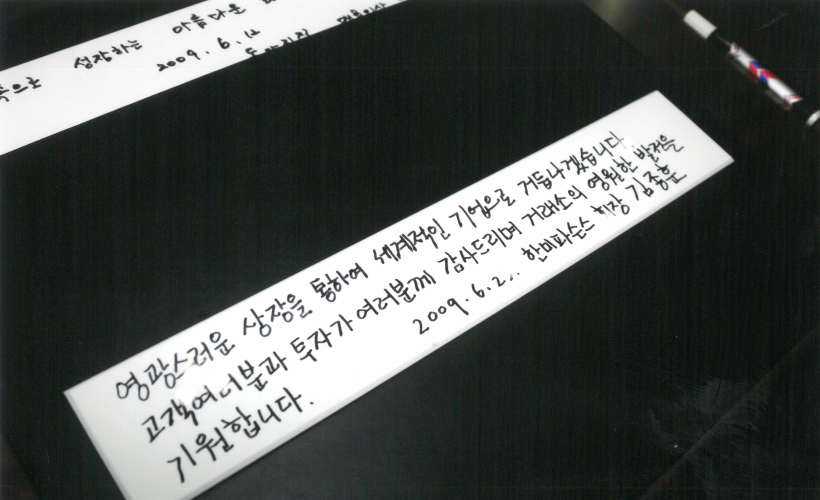 성장하는 아름다운
2009. 6. 12
영광스러운 상장을 통하여 세계적인 기업으로 거듭나겠습니다
고객여러분과 투자가 여러분께 감사드리며 거래소의 영원한 발전을
기원합니다.
2009. 6. 2 한미파슨스 회장 김종훈